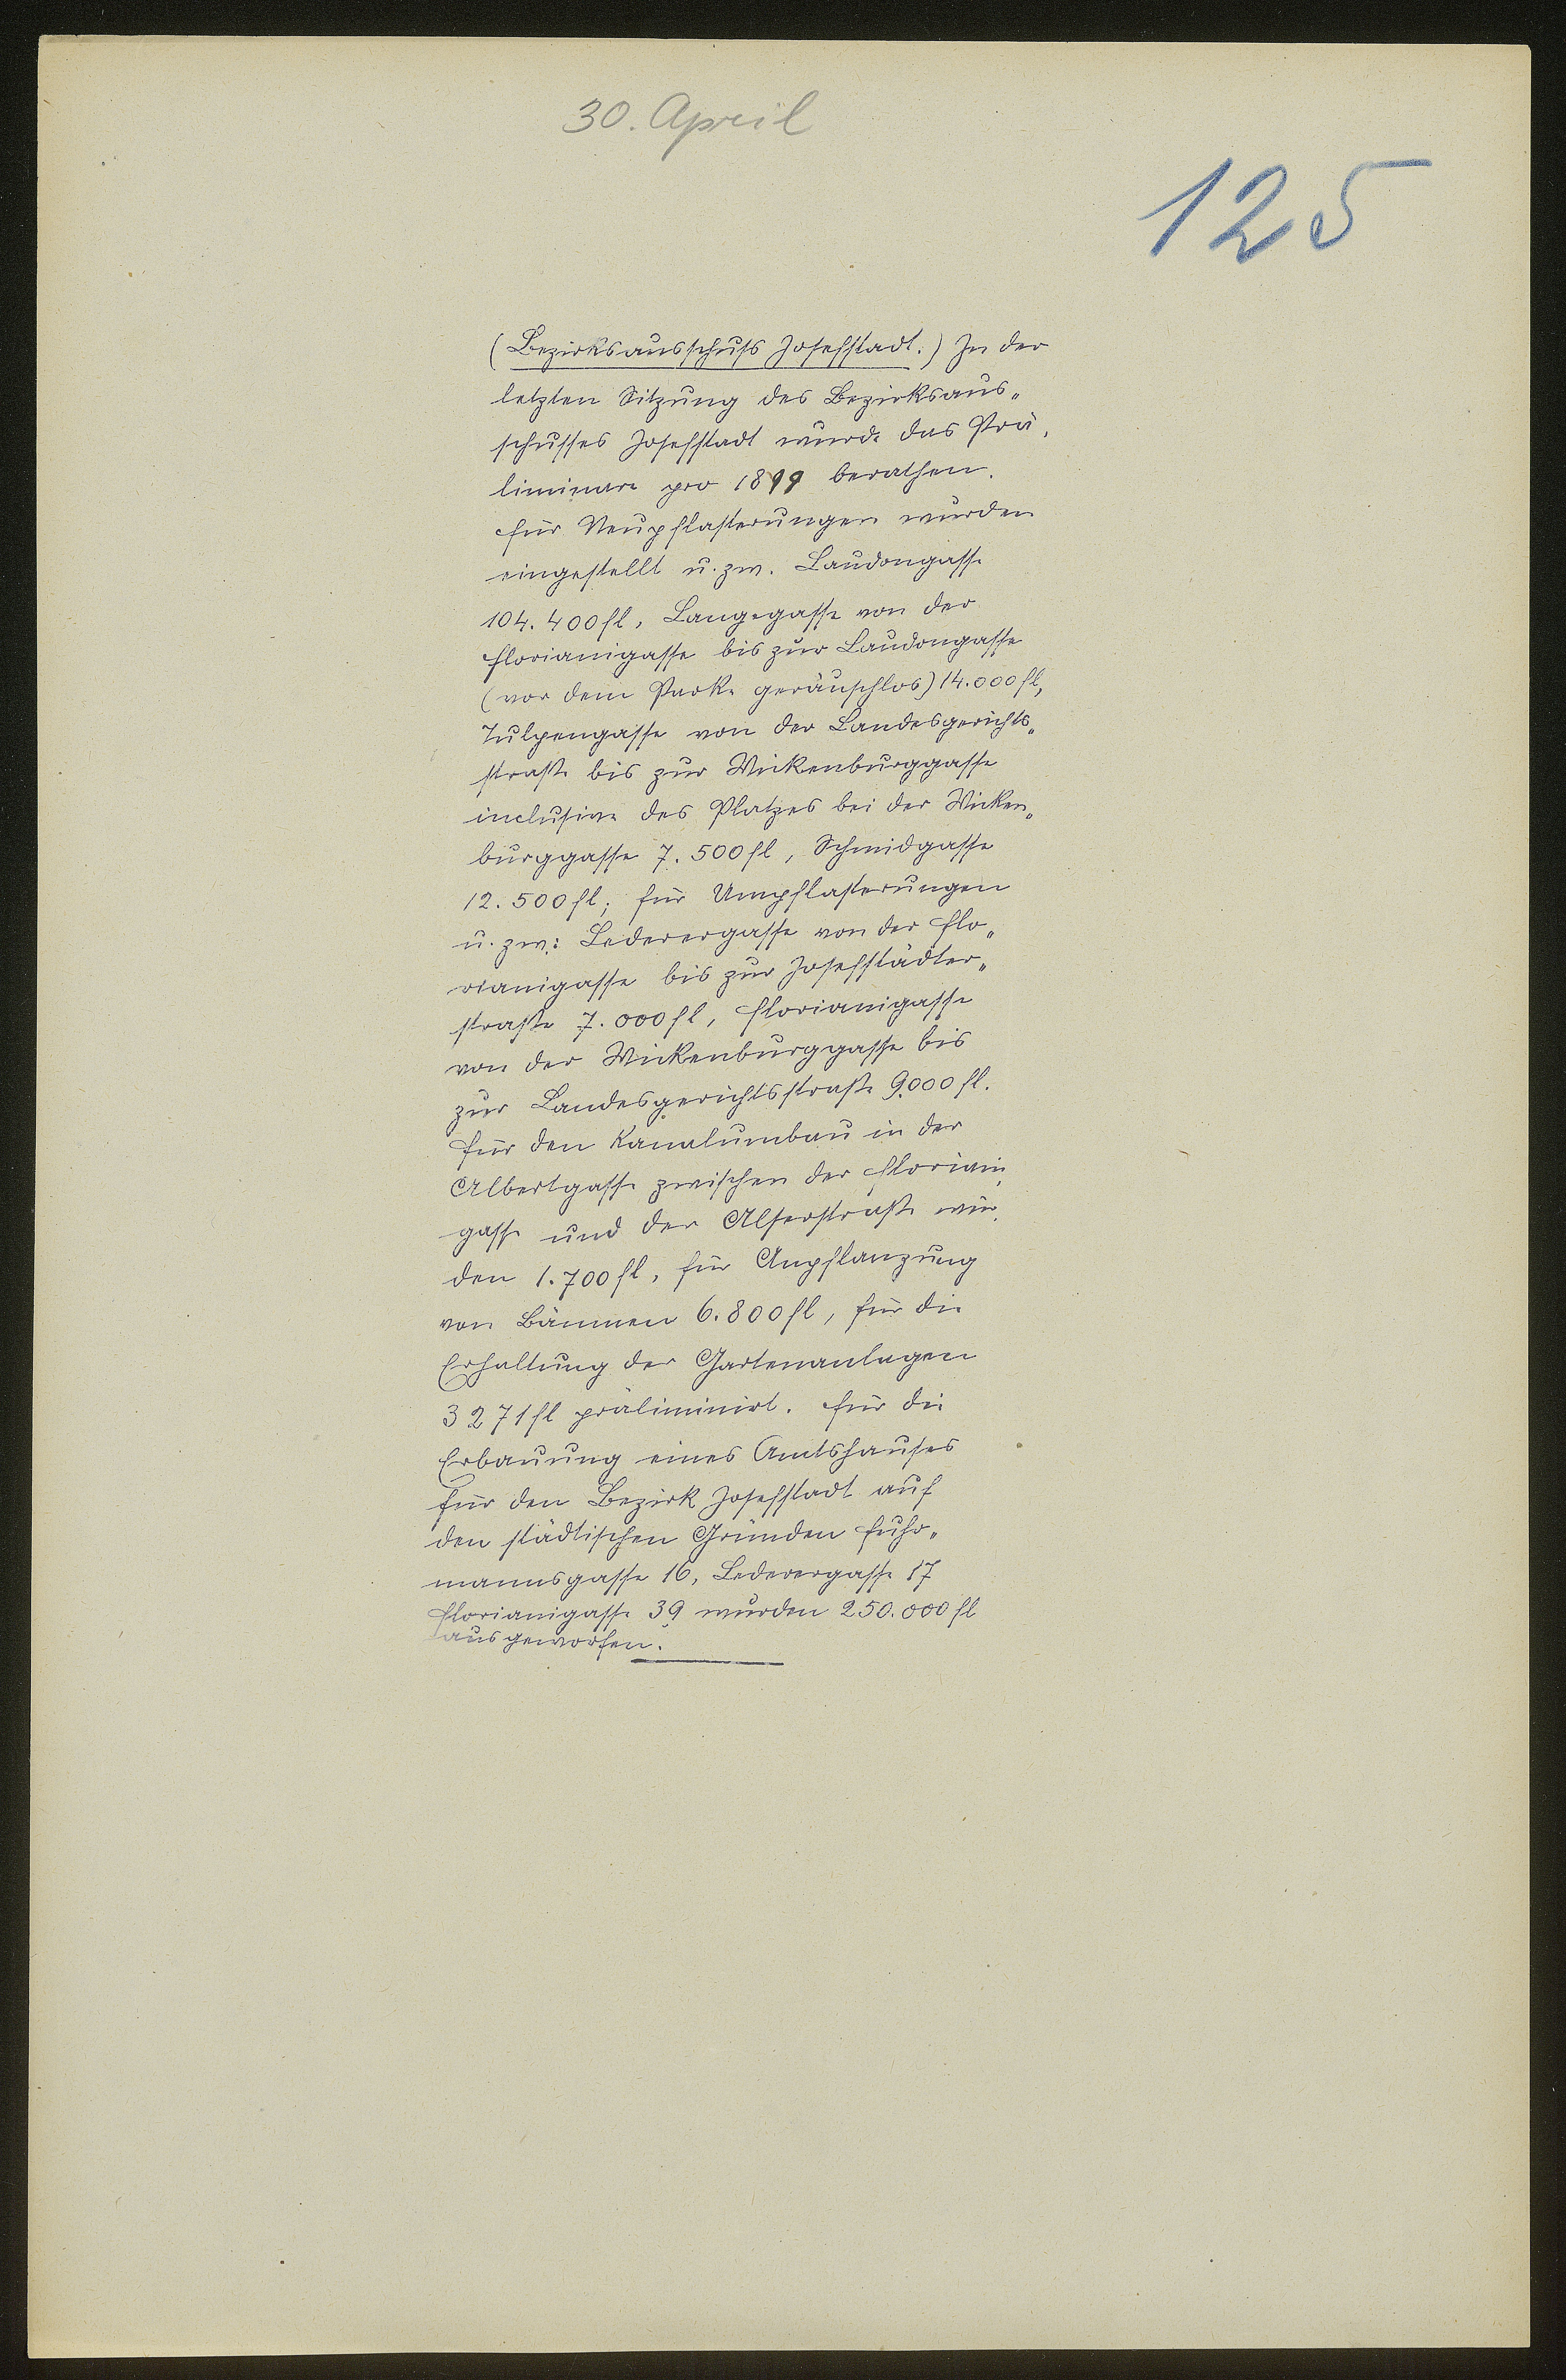 30. April
125
(Bezirksausschuss Josefstadt.) In der
letzten Sitzung des Bezirksaus„
schusses Josefstadt wurde das Prä„
liminare pro 1899 berathen.
Für Neupflasterungen wurden
eingestellt u. zw. Laudongasse
104.400 fl, Langegasse von der
Florianigasse bis zur Laudongasse
(vor dem Parke geräuschlos) 14.000 fl,
Tulpengasse von der Landesgerichts„
straße bis zur Wickenburggasse
inclusive des Platzes bei der Wicken„
burggasse 7.500 fl, Schmidgasse
12.500 fl; für Umpflasterungen
u. zw: Lederergasse von der Flo„
rianigasse bis zur Josefstädter„
straße 7.000 fl, Florianigasse
von der Wickenburggasse bis
zur Landesgerichtsstraße 9.000 fl.
Für den Kanalumbau in der
Albertgasse zwischen der Floriani„
gasse und der Alserstraße wur„
den 1.700 fl, für Anpflanzung
von Bäumen 6.800 fl, für die
Erhaltung der Gartenanlagen
3271 fl präliminirt. Für die
Erbauung eines Amtshauses
für den Bezirk Josefstadt auf
den städtischen Gründen Fuhr„
mannsgasse 16, Lederergasse 17
Florianigasse 39 wurden 250.000 fl
ausgeworfen.